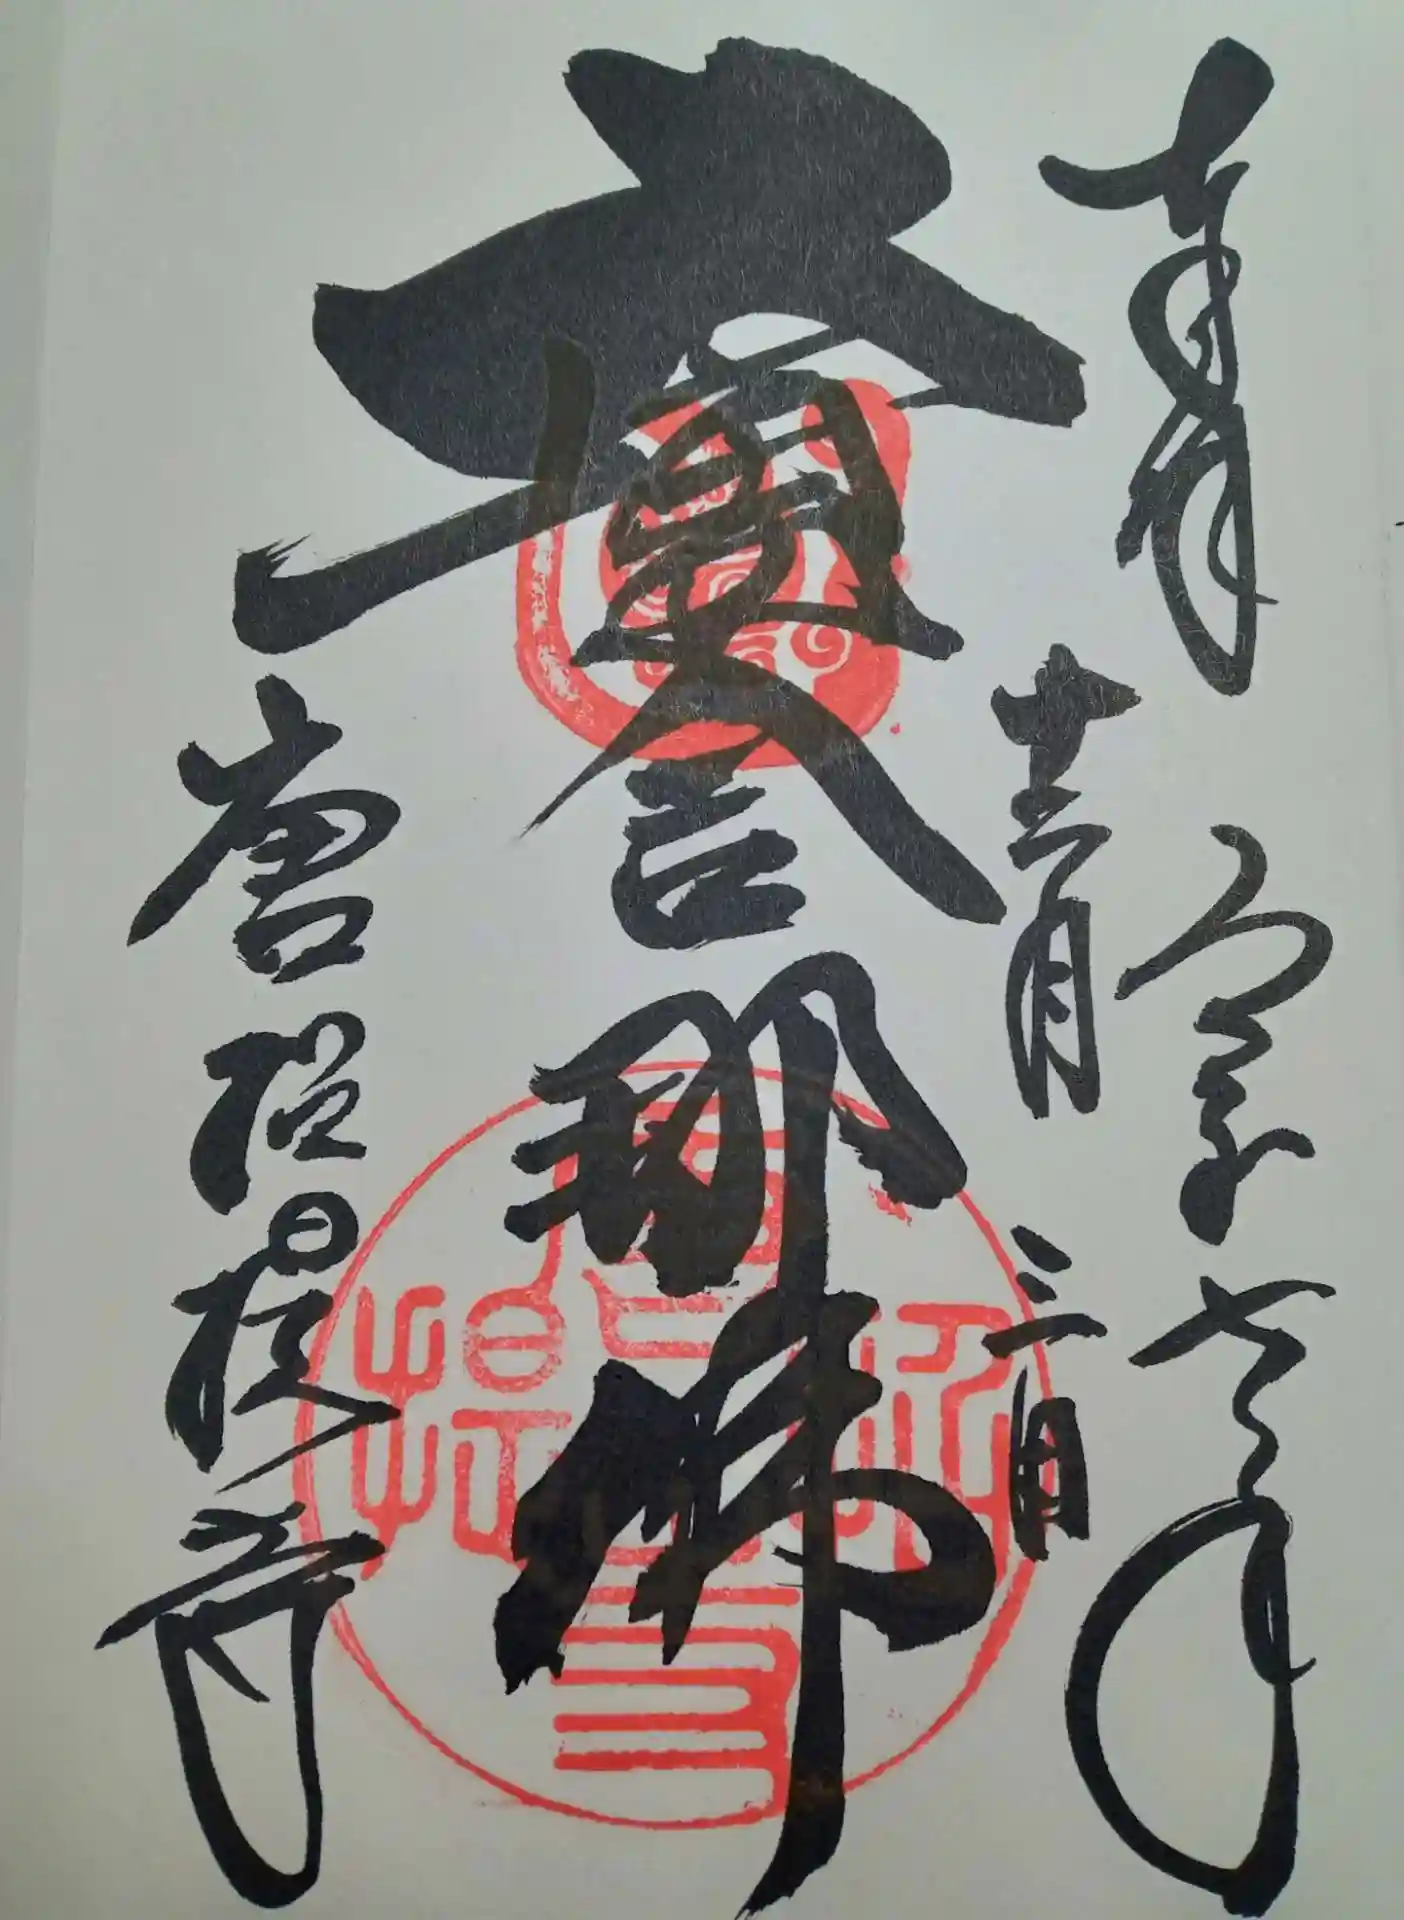 奉拝 令和 年
十二月 三日
盧舎那佛
唐招提寺